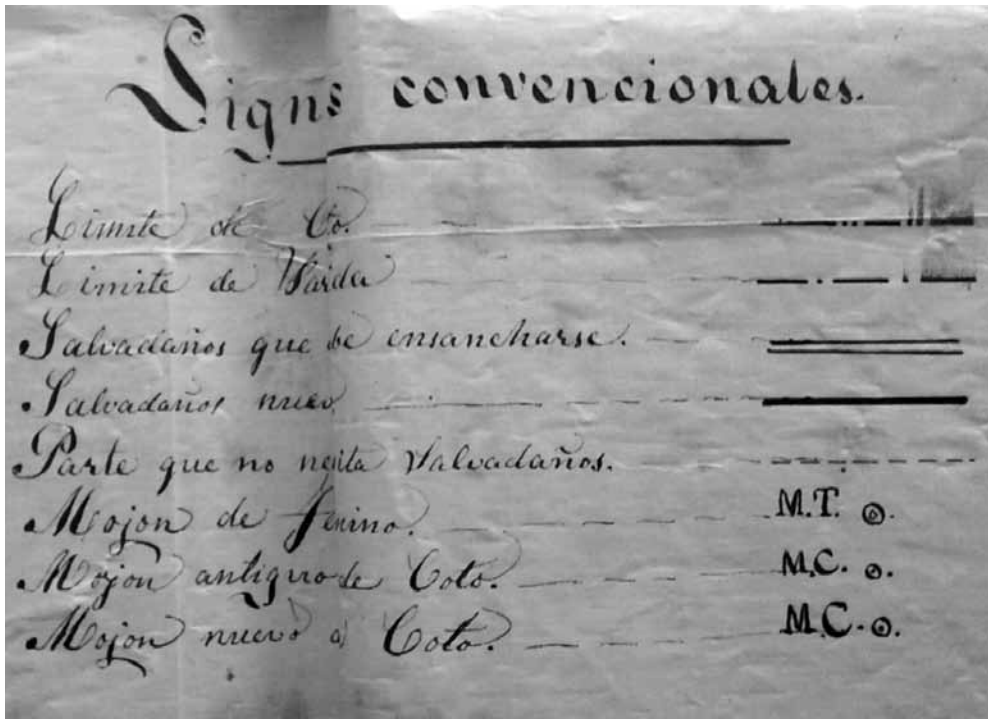 Signs convencionales.
Limite de Co.
Limite de
Salvadaños que be ensancharse.
Salvadaños nuevo
Parte que no Salvadaños.
Mojon de M.T.
Mojon antiguo de Coto. M.C.
Mojon nuevo Coto. M.C.